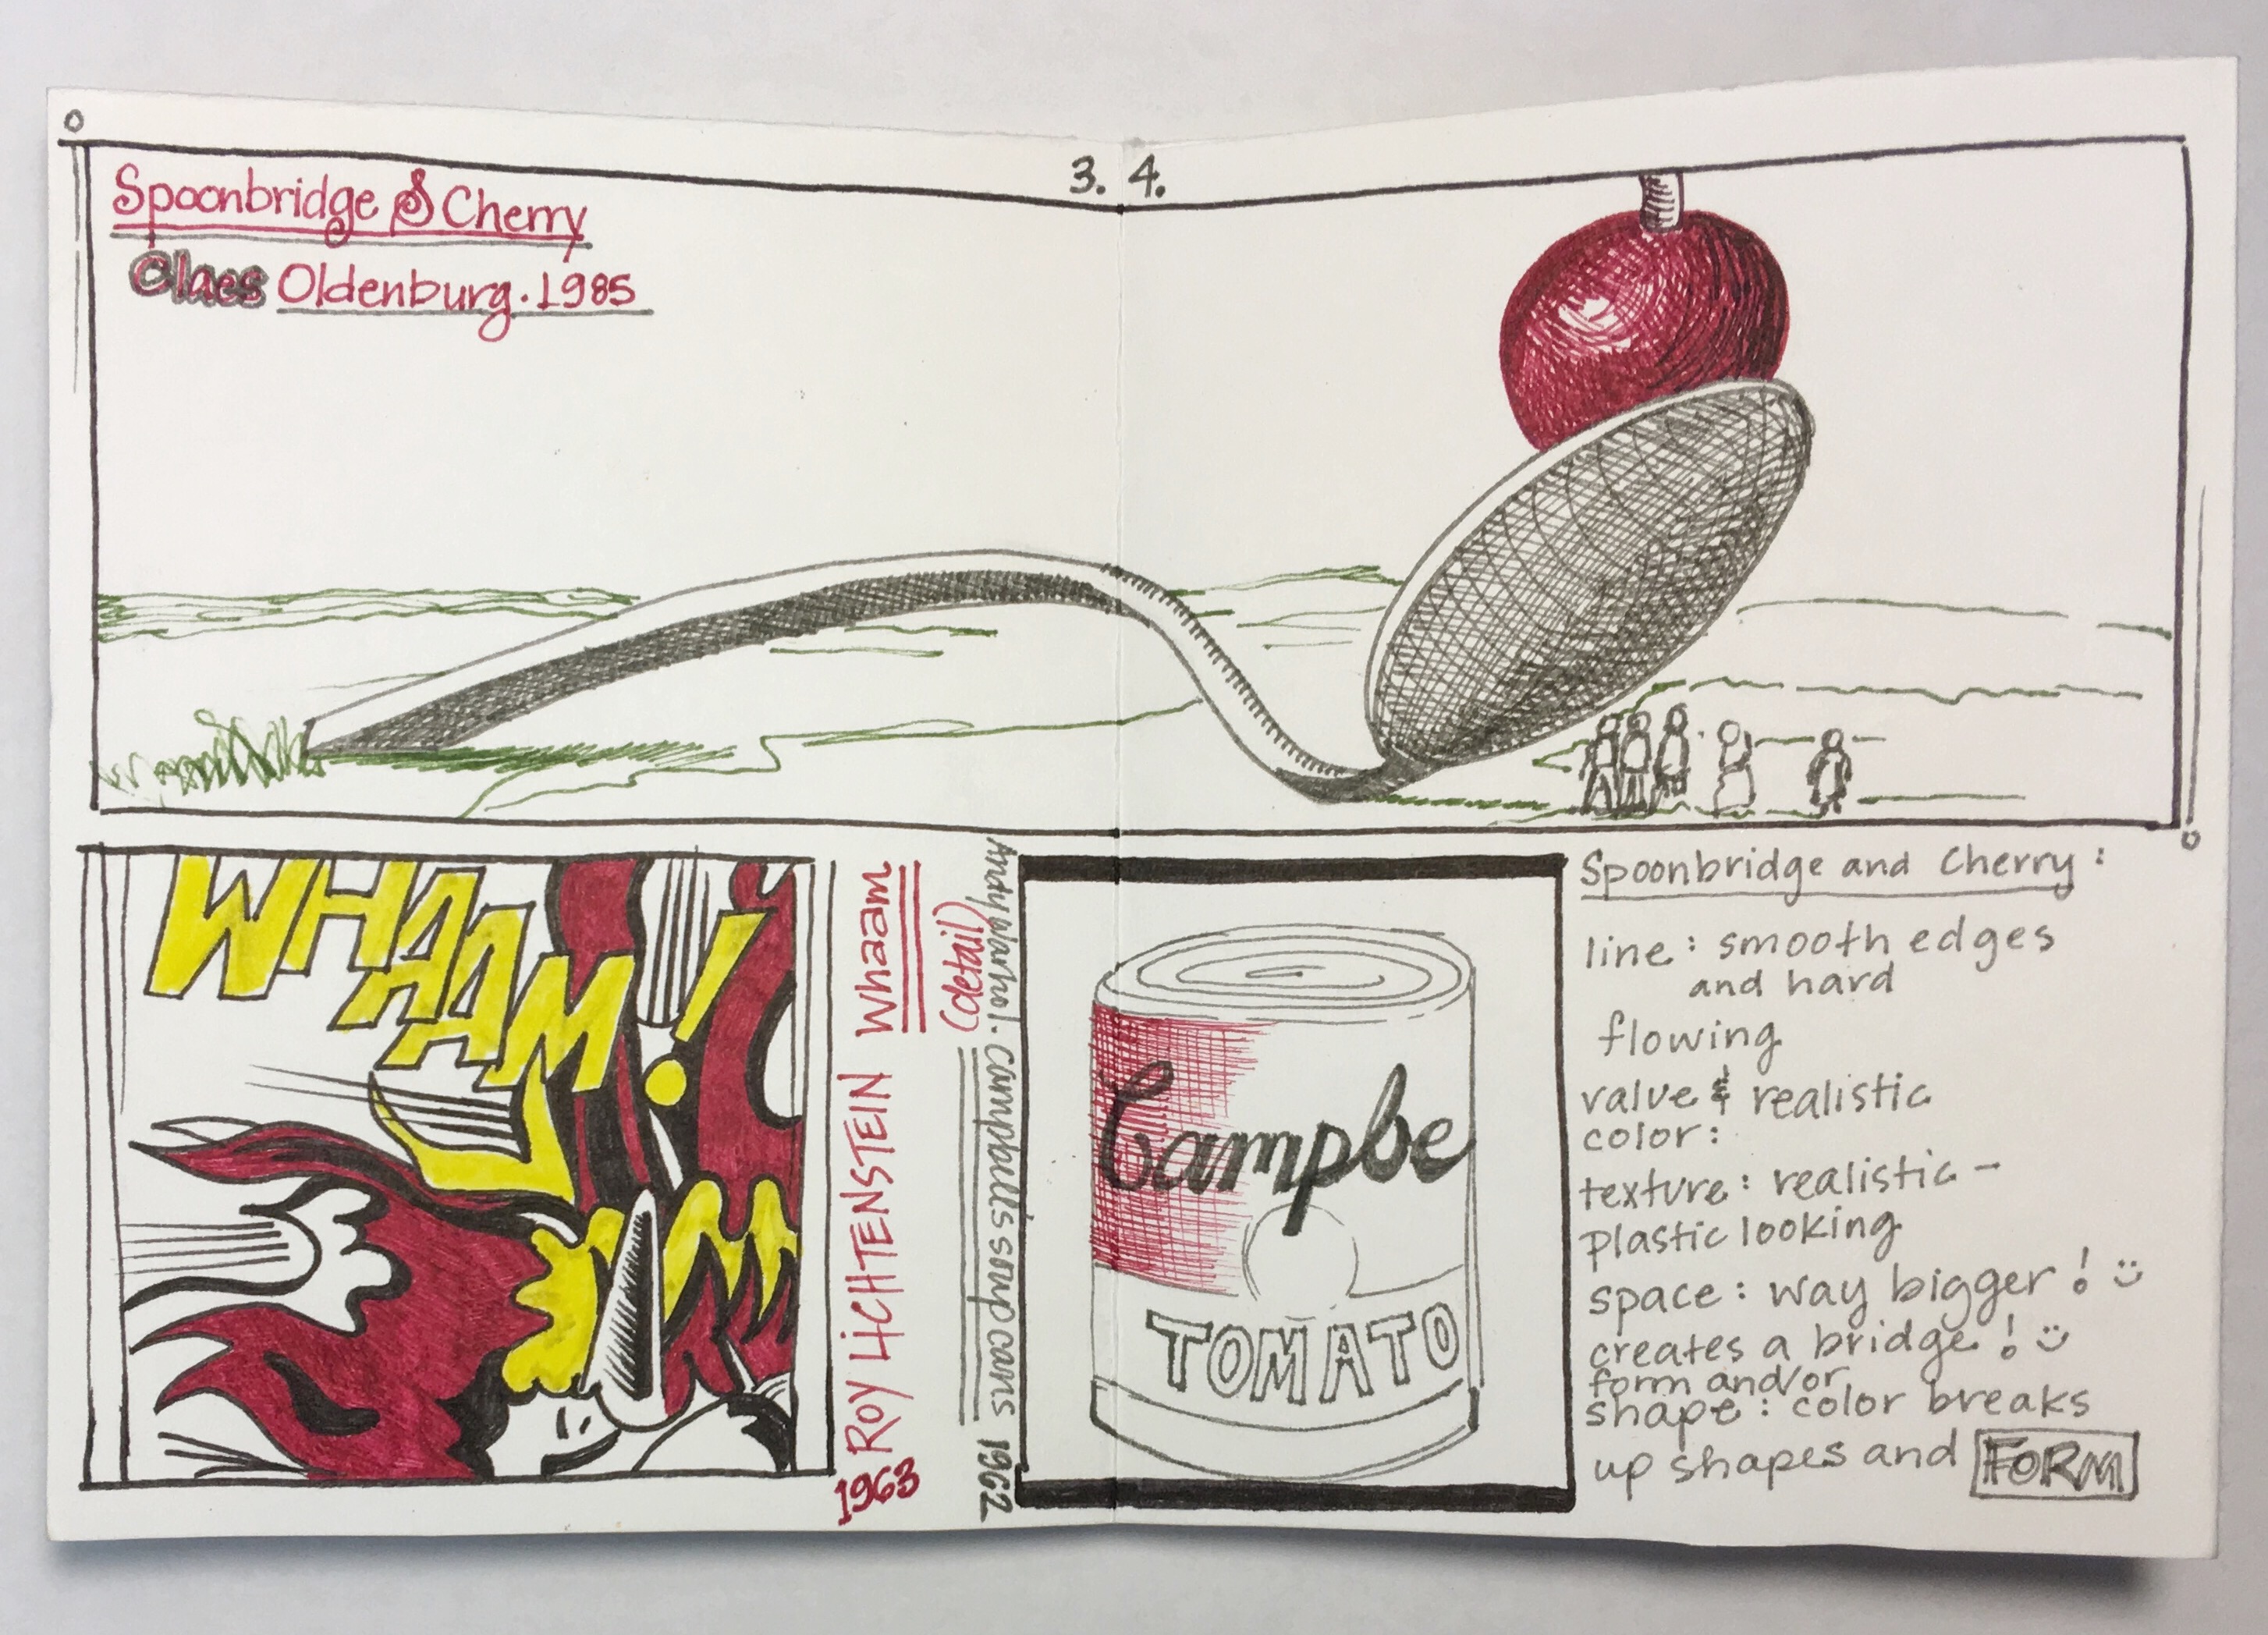 3. 4.
Spoonbridge & Cherry
Claes Oldenburg. 1985
WHAAAM!
ROY LICHTENSTEIN Whaam
(detail)
1963
Andy Warhol. Campbells soup cans 1962
Campbe
TOMATO
Spoonbridge and Cherry:
line: smooth edges
and hard
flowing
value & realistic
color:
texture: realistic -
plastic looking
space: way bigger! :)
creates a bridge! :)
form and/or
shape: color breaks
up shapes and FORM